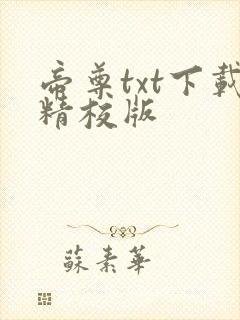 帝尊txt下載
精校版
蘇素華